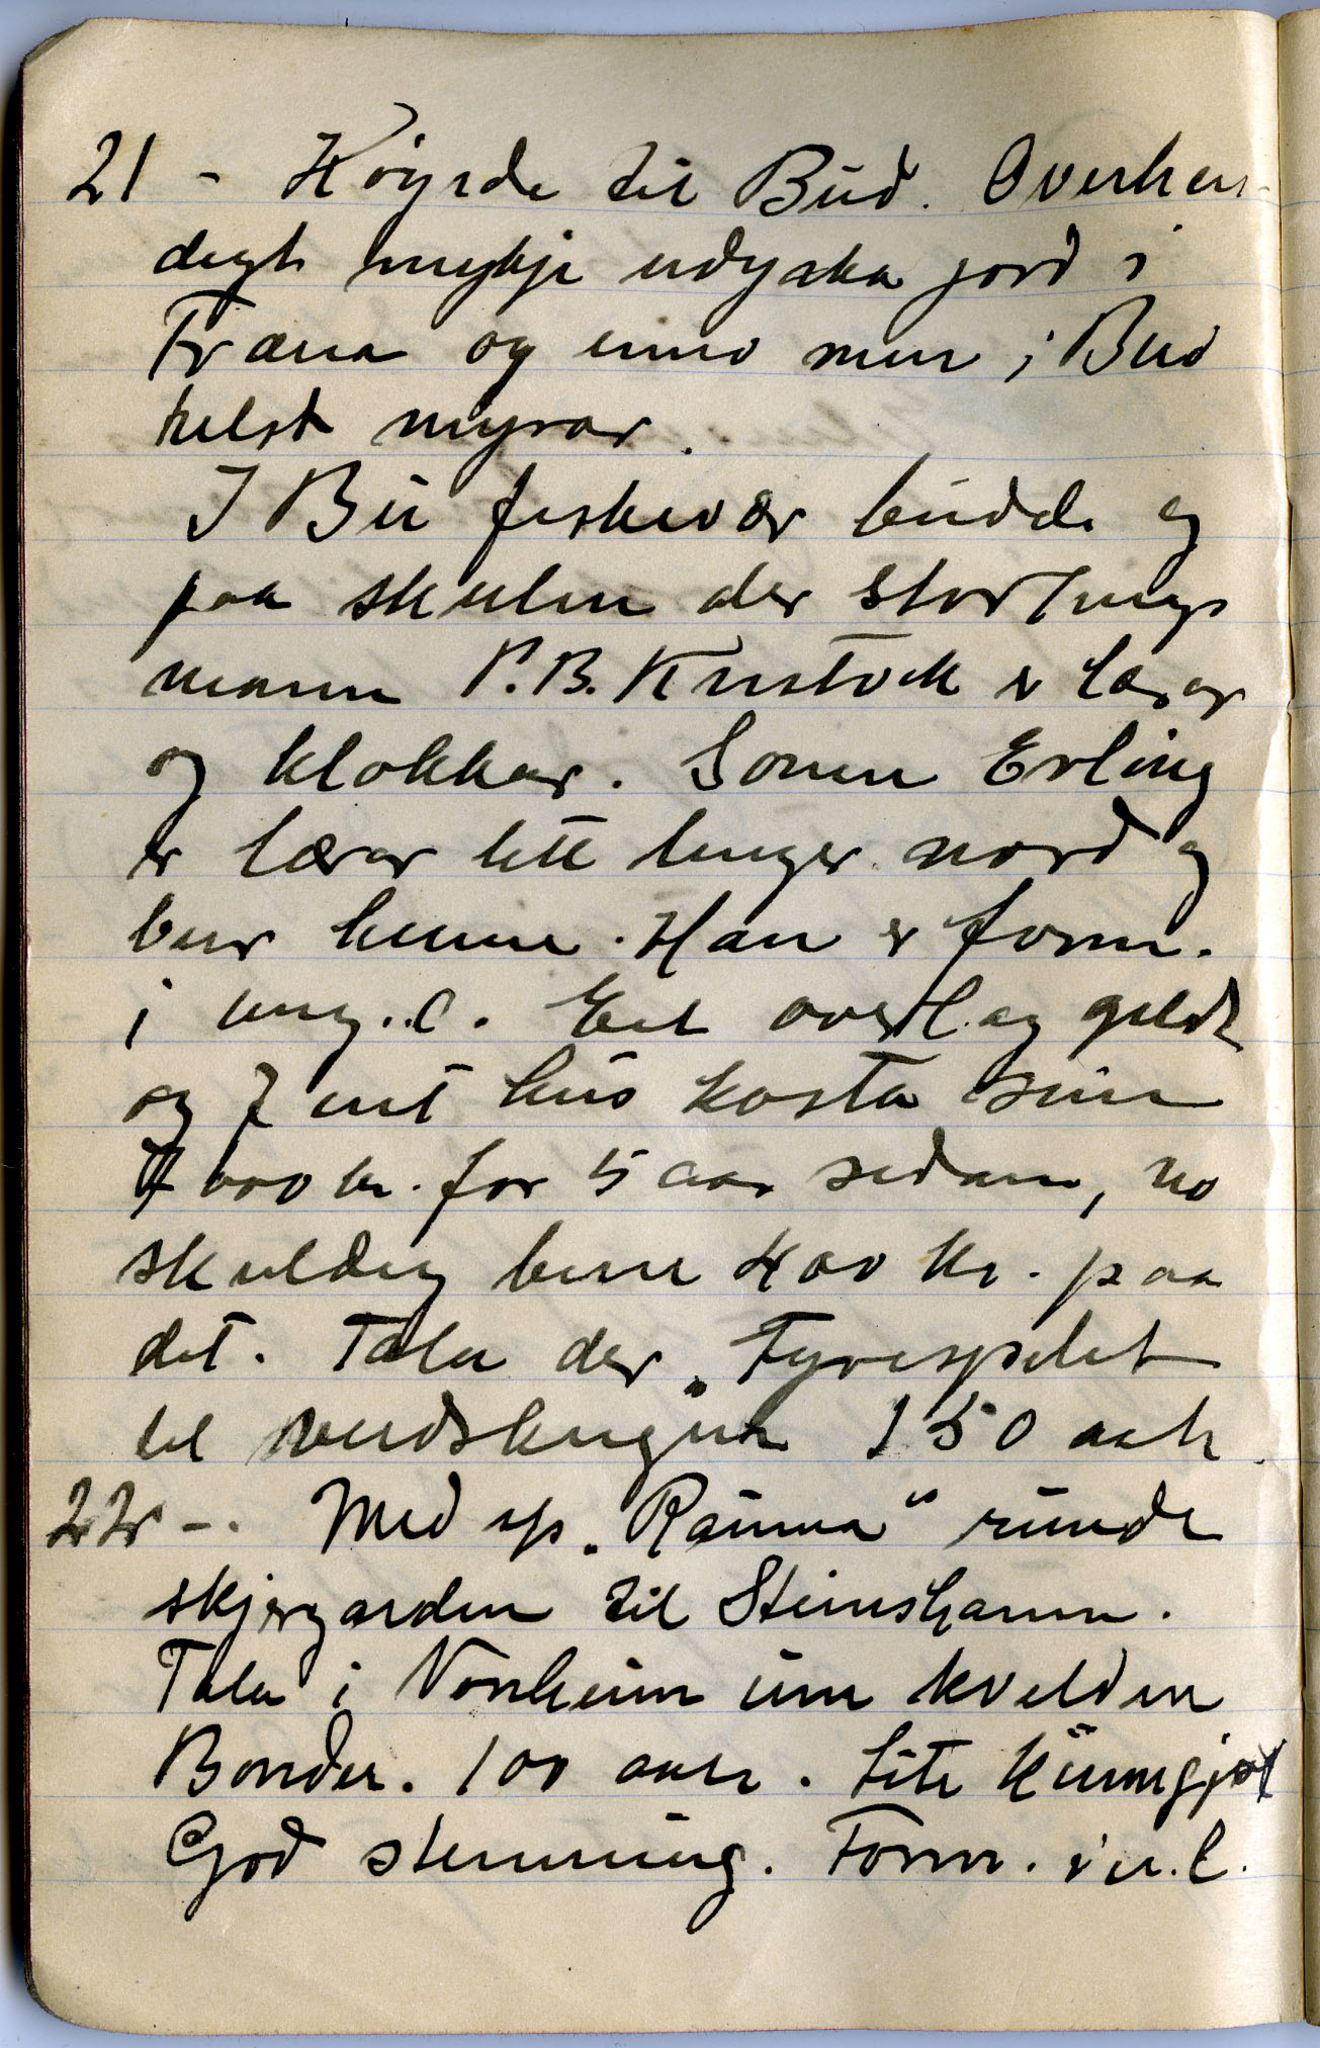 21 - Köyrde til Bud. Overhen-
digt mykje udyrka jord i
Fræna og enno meir i Bud
helst myrar.
I Bu fiskevær budde eg
paa skulen der stortings
mann P.B. Krustock er lærar
og klokkar. Sonen Erling
er lærar litt lenger nord og
bur heime. Han er form.
i ung.l. Eit overlag gildt
og fint hus kosta sine
7000 kr. for 15 aar sidan, no
skuldig berre 400 kr. paa
det. Tala der „Fyrespelet
til verdskrigen 150 aah.
22 -. Med sp. „Rauma" rundt
skjergarden til Steinshamn.
Tala i Vonheim um kvelden
Bonder. 100 aah. Lite kunngjort
God stemning. Form. i u.l.